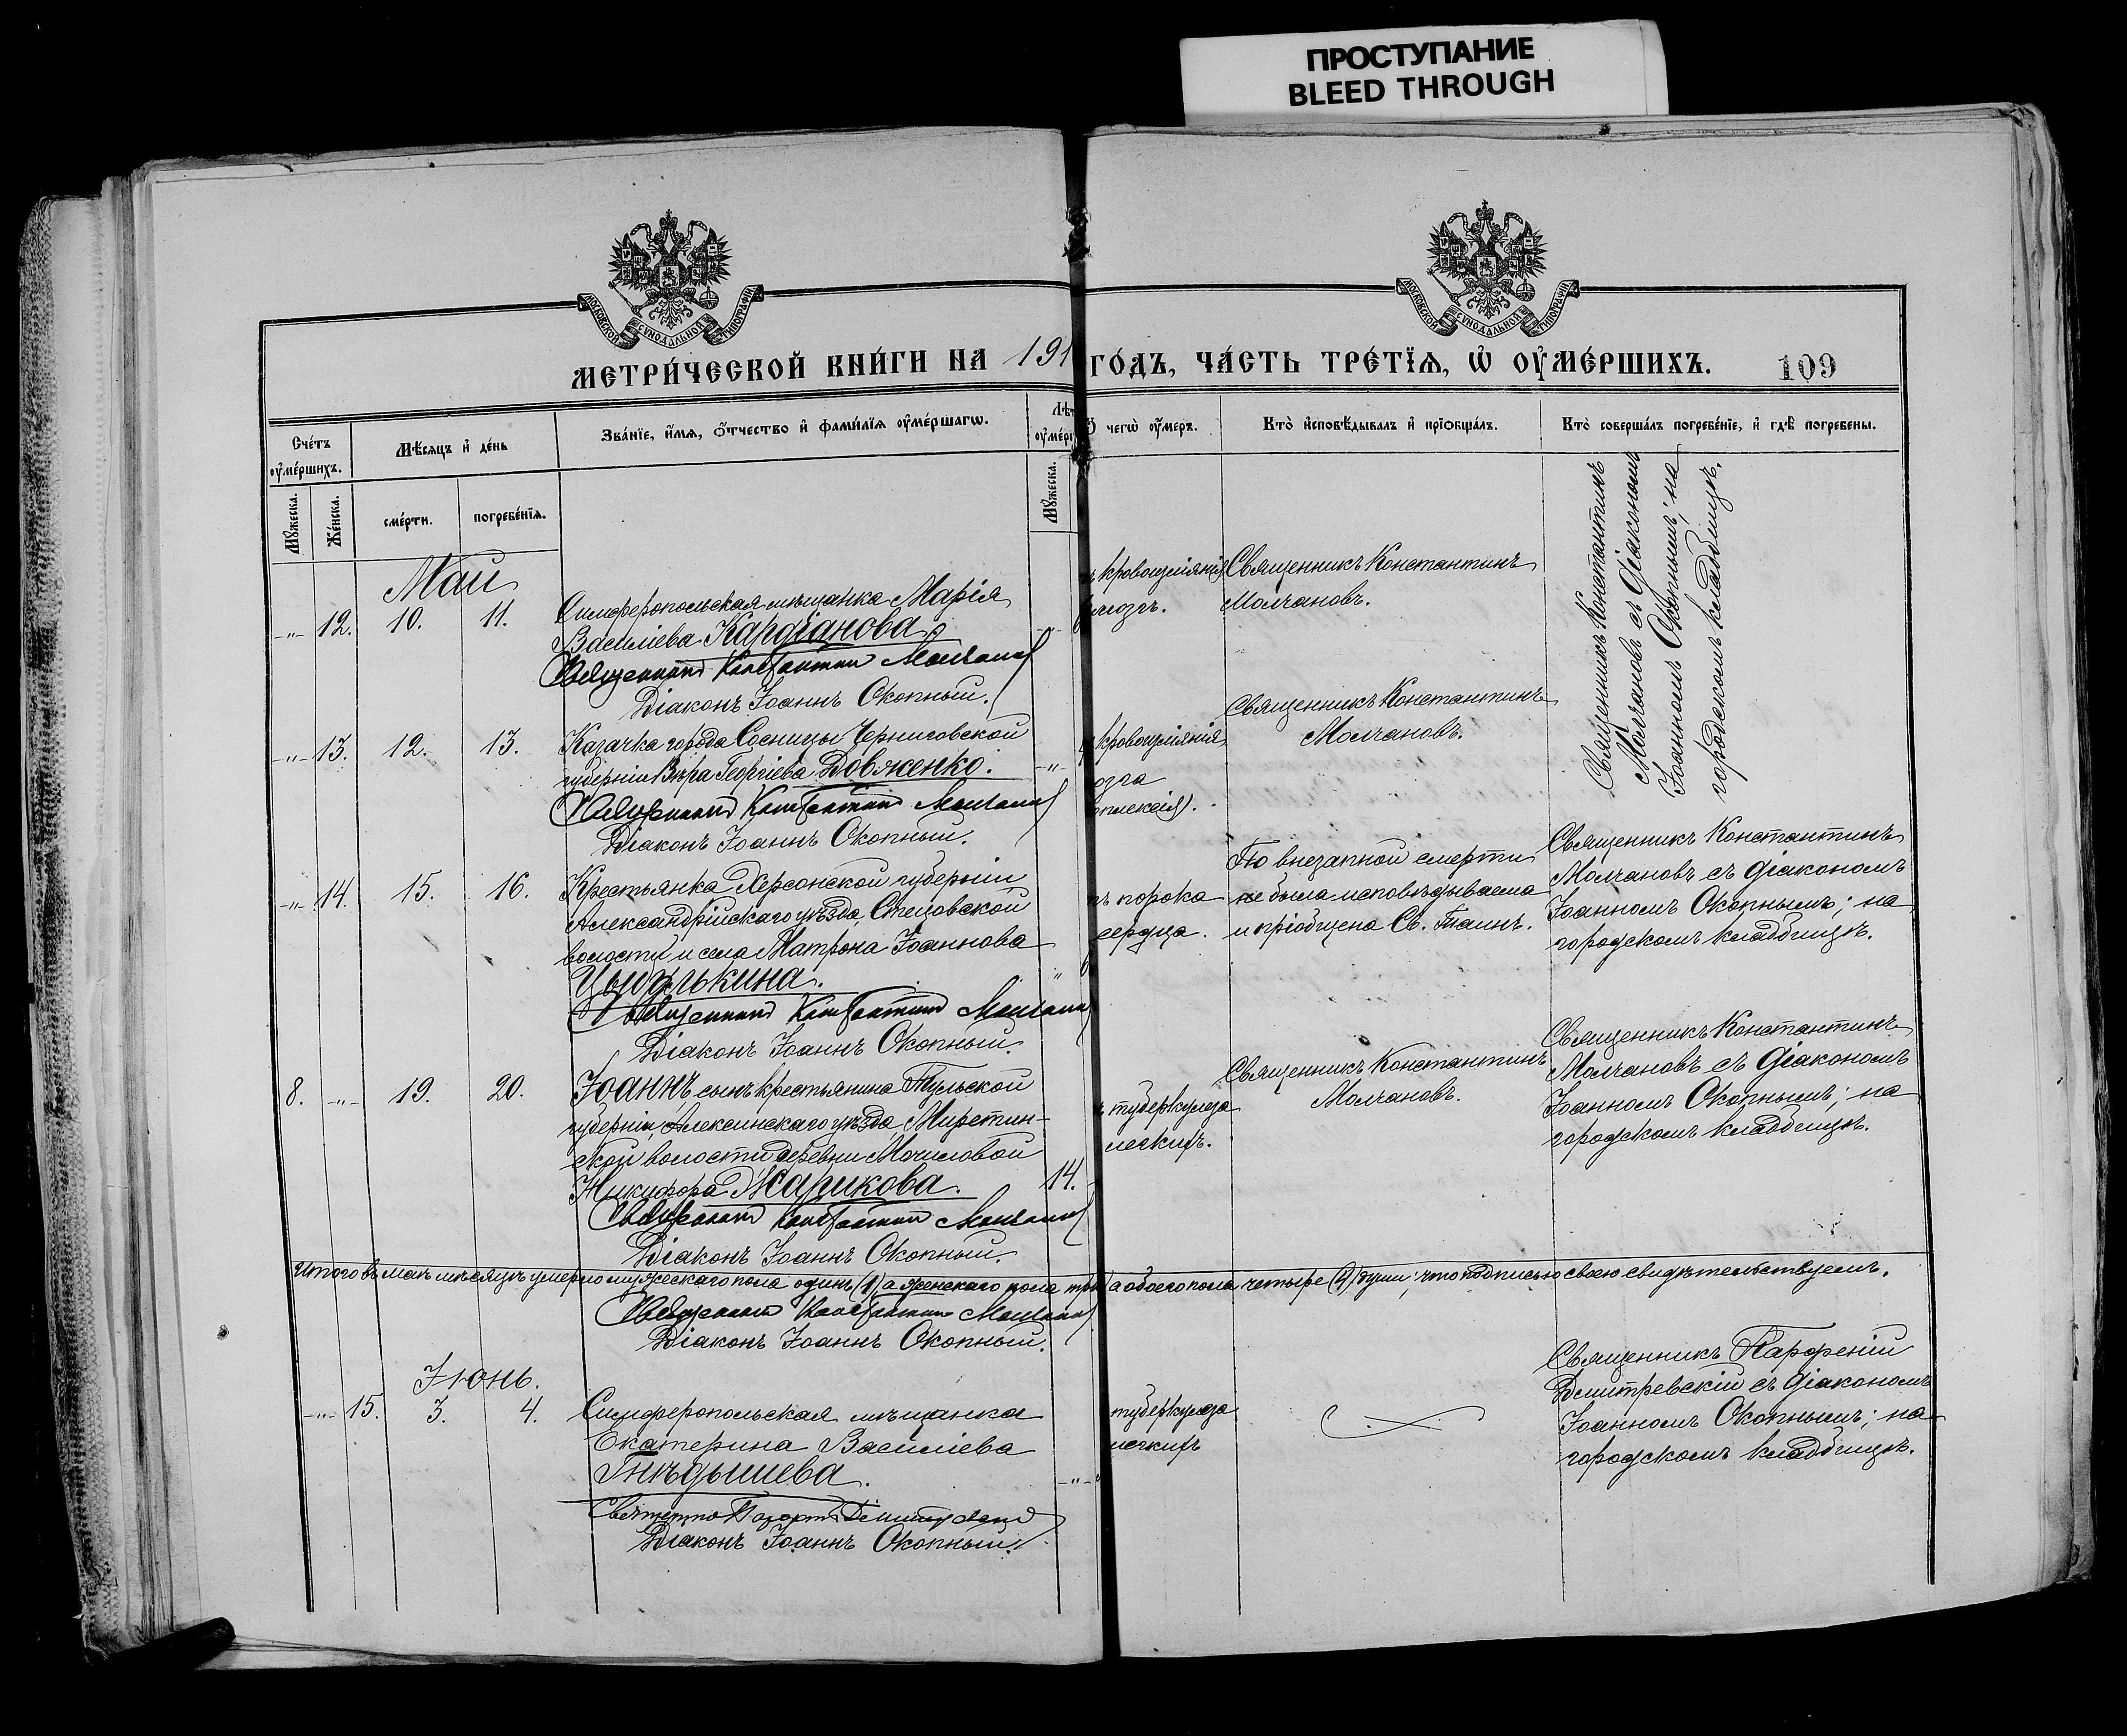 ПРОСТУПАНИЕ
BLEED THROUGH
МОСКОВСКОЙ СѴНОДАЛЬНОЙ ТИПОГРАФІИ
МОСКОВСКОЙ СѴНОДАЛЬНОЙ ТИПОГРАФІИ
МЕТРИ́ЧЕСКОЙ КНИ́ГИ НА 191
ГО́ДЪ, ЧА́СТЬ ТРЕ́ТЇѦ, Ѡ҆ ОУ҆МЕ́РШИХЪ.
109
Сче́тъ оу҆ме́ршихъ.
Мѣ́сяцъ и҆ де́нь
Зва́нїе, и҆́мя, ѻ҆́тчество и҆ фами́лїя оу҆ме́ршагѡ.
Лѣт
оу҆ме́рш
чегѡ̀ оу҆́меръ.
Кто̀ и҆сповѣ́дывалъ и҆ прїѻбща́лъ.
Кто̀ соверша́лъ погребе́нїе, и҆ гдѣ̀ погребены.
Мꙋ́жеска.
Же́нска.
сме́рти.
погребе́нїя.
Мꙋ́жеска.
Май
-"- 12. 10. 11.
Симферопольская мѣщанка Марія
Василіева Кардіанова
Священникъ Константинъ Молчановъ
Діаконъ Іоаннъ Окопный.
кровоизліянія
мозгъ.
Священникъ Константинъ
Молчановъ.
Священникъ Константинъ
Молчановъ съ діакономъ
Іоанномъ Окопнымъ; на
городскомъ кладбищѣ.
-"- 13. 12. 13.
Казачка города Сосницы Черниговской
губерніи Вѣра Георгіева Довженко.
-"-
Священникъ Константинъ Молчановъ
Діаконъ Іоаннъ Окопный.
кровоизліянія
озга
оплексія).
Священникъ Константинъ
Молчановъ.
-"- 14. 15. 16.
Крестьянка Херсонской губерніи
Александрійскаго уѣзда, Стецовской
волости и села Матрона Іоаннова
Цыбулькина.
"
Священникъ Константинъ Молчановъ
Діаконъ Іоаннъ Окопный.
ъ порока
сердца.
По внезапной смерти
не была исповѣдываема
и пріобщена Св. Таинъ.
Священникъ Константинъ
Молчановъ съ діакономъ
Іоанномъ Окопнымъ; на
городскомъ кладбищѣ.
8. -"- 19. 20.
Іоаннъ сынъ крестьянина Тульской
губерніи, Алексинскаго уѣзда, Миротин-
ской волости деревни Мочиловой
Никифора Жарикова.
14.
Священникъ Константинъ Молчановъ
Діаконъ Іоаннъ Окопный.
ъ туберкулеза
легкихъ.
Священникъ Константинъ
Молчановъ.
Священникъ Константинъ
Молчановъ съ діакономъ
Іоанномъ Окопнымъ; на
городскомъ кладбищѣ.
Итого въ маѣ мѣсяцѣ умерло мужескаго пола одинъ (1), а женскаго пола три а обоего пола четыре (4) души; что подписью своею свидѣтельствуемъ.
Священникъ Константинъ Молчановъ
Діаконъ Іоаннъ Окопный.
Іюнь.
-"- 15. 3. 4.
Симферопольская мѣщанка
Екатерина Василіева
Гнѣдышева.
-"-
Діаконъ Іоаннъ Окопный.
туберкулеза
легкихъ
Священникъ Парфеній
Дмитревскій съ діакономъ
Іоанномъ Окопнымъ; на
городскомъ кладбищѣ.